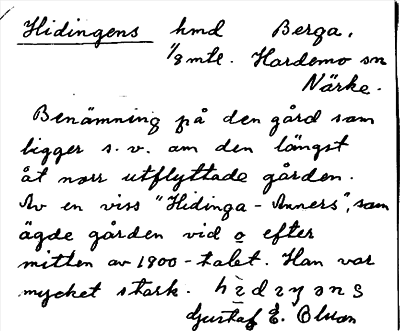 Hidingens hmd Berga,
1/8 mtl. Hardemo sn
Närke.
Benämning på den gård som
ligger s. v. om den längst
åt norr utflyttade gården.
Av en viss "Hidinga-Anners", som
ägde gården vid o efter
mitten av 1900-talet. Han var
mycket stark.
Gustaf E. Olson